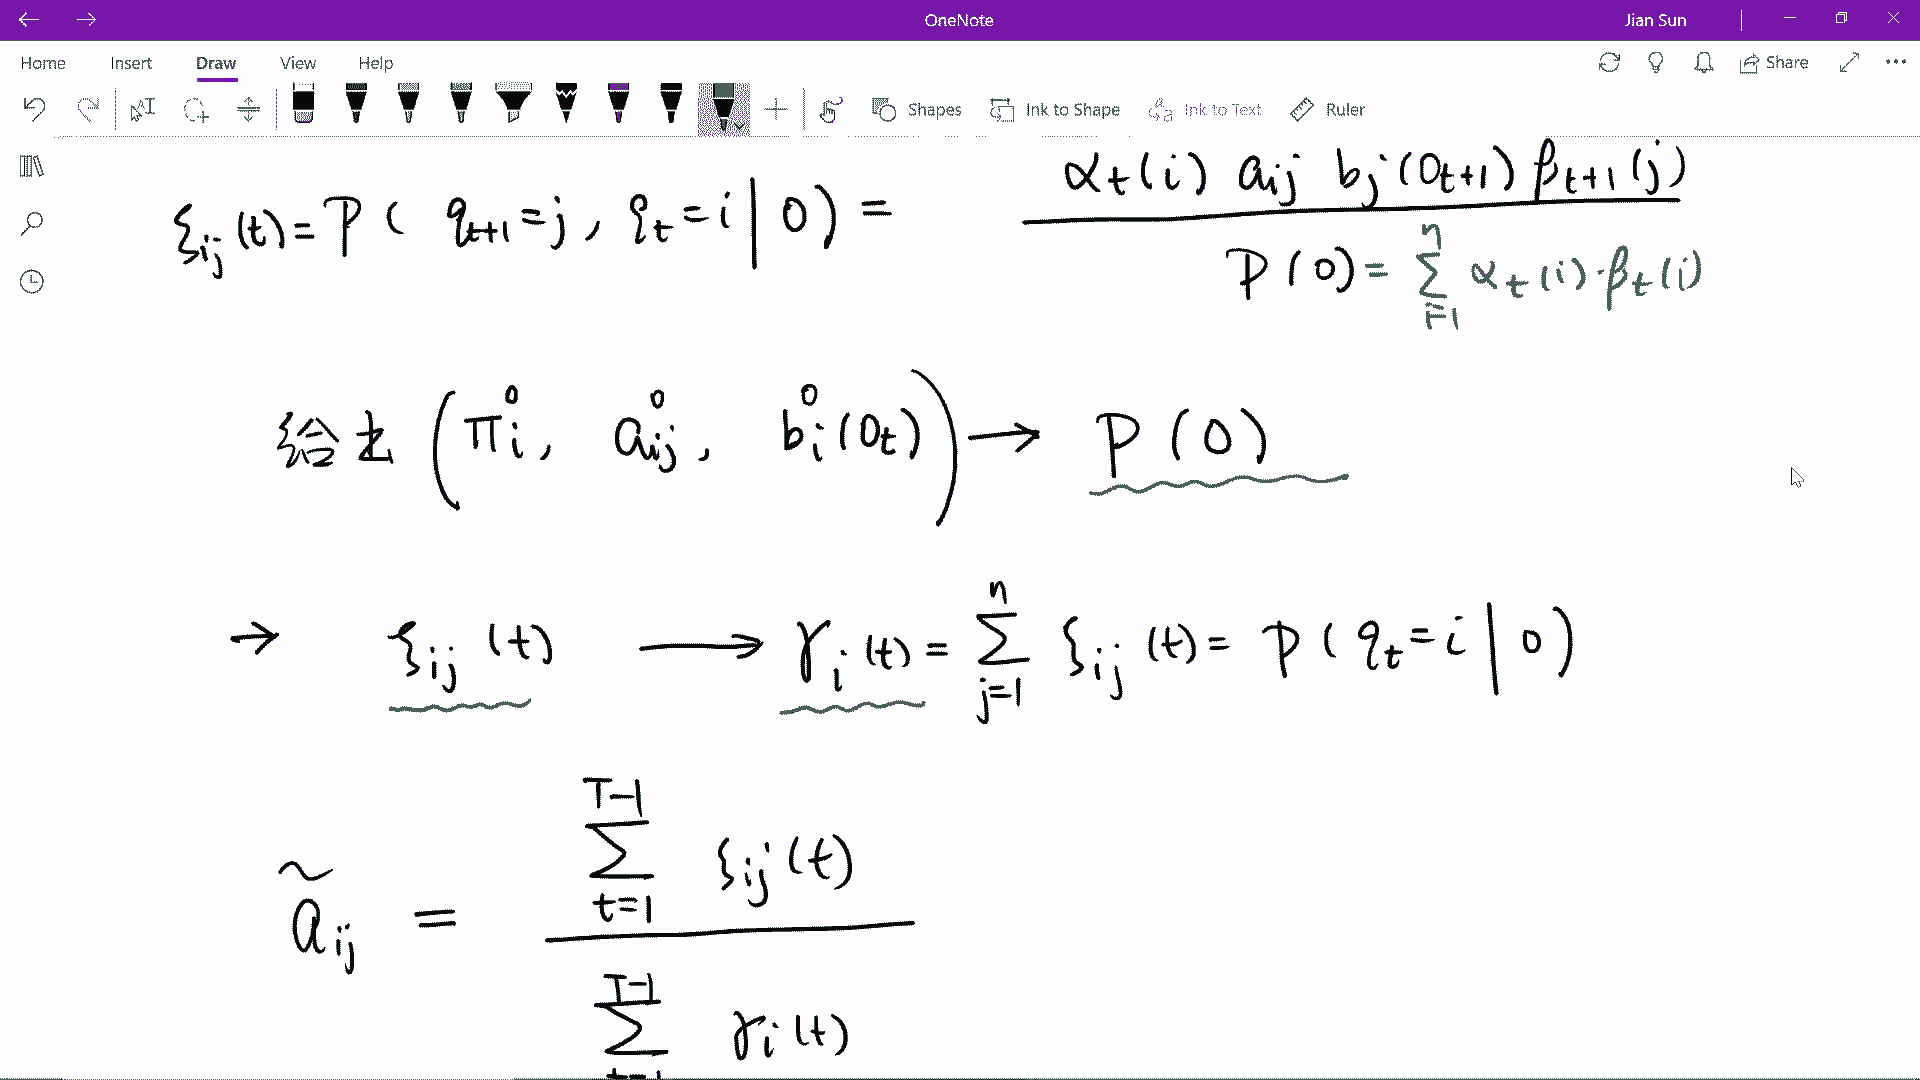 OneNote
Jian Sun
Home Insert Draw View Help
Share
Shapes Ink to Shape Ink to Text Ruler
ξij(t) = P( qt+1 = j, qt = i | O ) = αt(i) aij bj(Ot+1) βt+1(j)
P(O) = n Σ i=1 αt(i)·βt(i)
给出 ( πi⁰, aij⁰, bi⁰(Ot) ) → P(O)
→ ξij(t) → γi(t) = n Σ j=1 ξij(t) = P( qt = i | O )
T-1 Σ t=1 ξij(t)
ãij =
T-1 Σ γi(t)